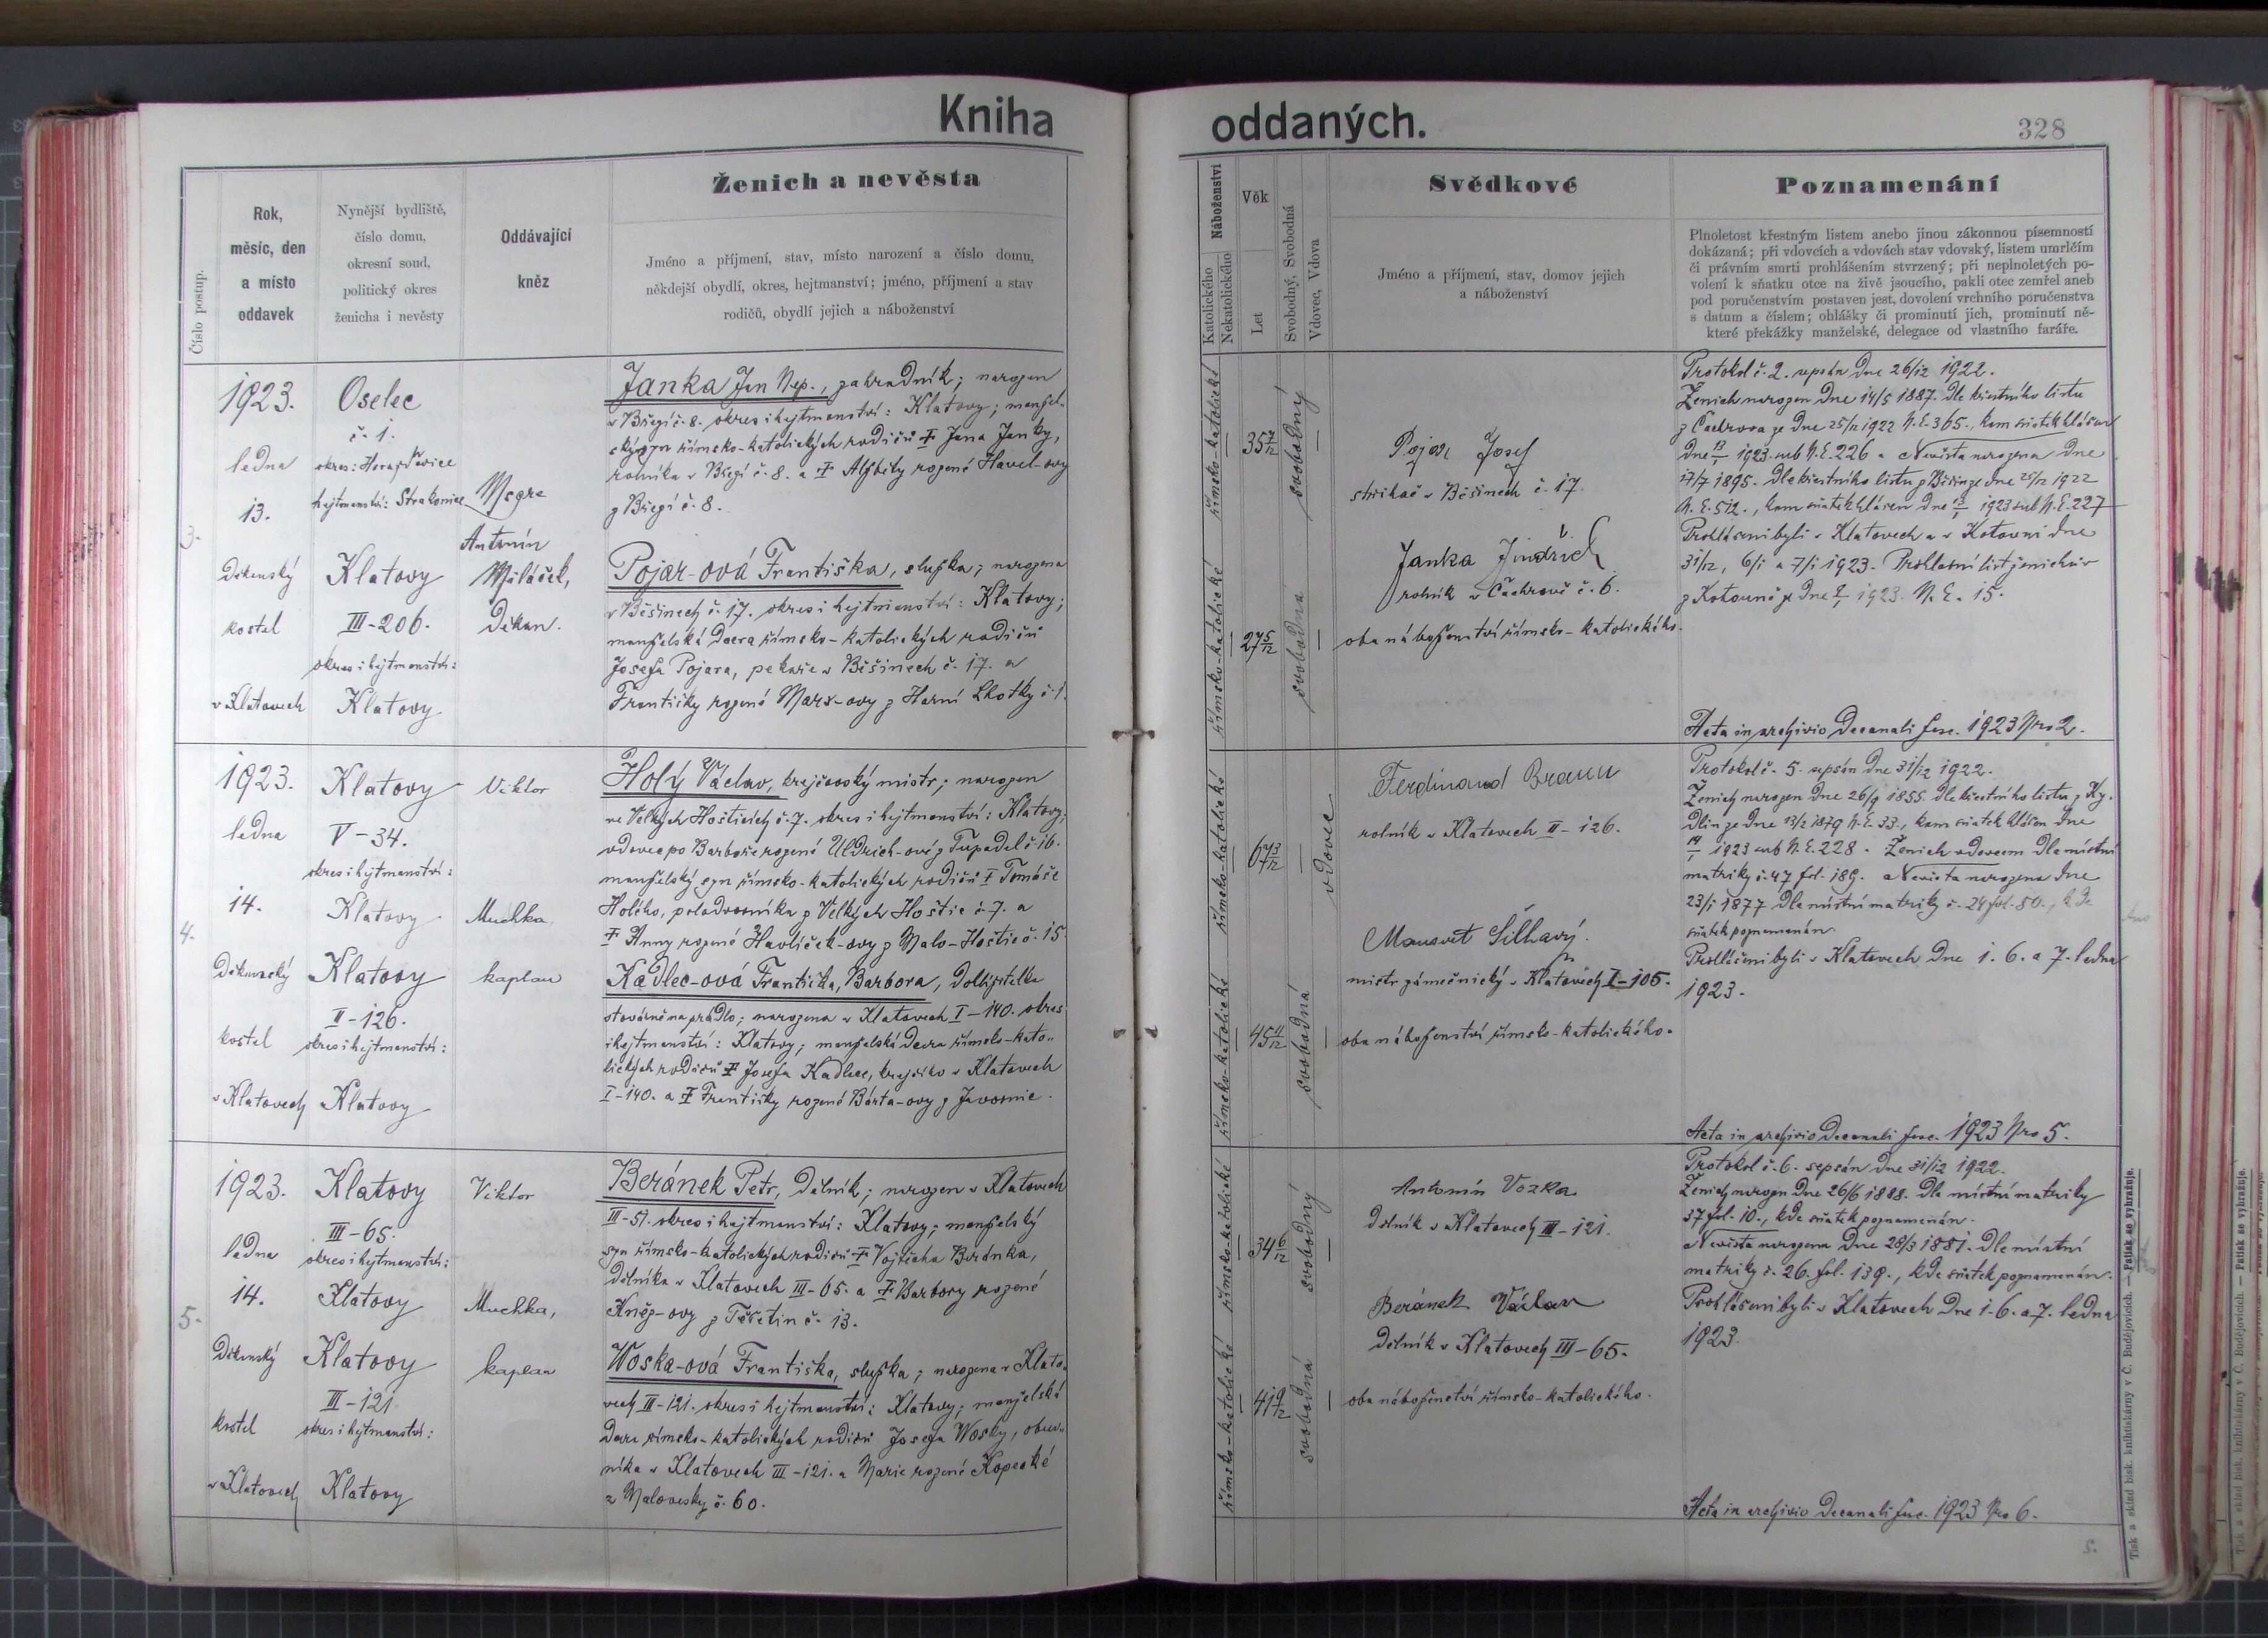 Kniha
oddaných.
328
Číslo postup.
Rok,
měsíc, den
a místo
oddavek
Nynější bydliště,
číslo domu,
okresní soud,
politický okres
ženicha i nevěsty
Oddávající
kněz
Ženich a nevěsta
Jméno a příjmení, stav, místo narození a číslo domu,
někdejší obydlí, okres, hejtmanství; jméno, příjmení a stav
rodičů, obydlí jejich a náboženství
Náboženství
Katolického
Nekatolického
Věk
Let
Svobodný, Svobodná
Vdovec, Vdova
Svědkové
Jméno a příjmení, stav, domov jejich
a náboženství
Poznamenání
Plnoletost křestným listem anebo jinou zákonnou písemností
dokázaná; při vdovcích a vdovách stav vdovský, listem umrlčím
či právním smrti prohlášením stvrzený; při neplnoletých po-
volení k sňatku otce na živě jsoucího, pakli otec zemřel aneb
pod poručenstvím postaven jest, dovolení vrchního poručenstva
s datum a číslem; ohlášky či prominutí jich, prominutí ně-
které překážky manželské, delegace od vlastního faráře.
3.
1923.
ledna
13.
Děkanský
kostel
v Klatovech
Oselec
č. 1.
okres: Horažďovice
hejtmanství: Strakonice
Klatovy
III-206.
okres i hejtmanství:
Klatovy
Msgre
Antonín
Miláček,
Děkan.
Janka Jan Nep., zahradník; narozen
v Břeží č. 8. okres i hejtmanství: Klatovy; manžel-
ský syn římsko-katolických rodičů † Jana Janky,
rolníka v Břeží č. 8. a † Alžběty rozené Havel-ovy
z Břeží č. 8.
Pojar-ová Františka, služka; narozena
v Běšinech č. 17. okres i hejtmanství: Klatovy;
manželská dcera římsko-katolických rodičů
Josefa Pojara, pekaře v Běšinech č. 17. a
Františky rozené Marx-ovy z Horní Lhotky č. 1.
římsko-katolické
35 7/12
svobodný
římsko-katolické
27 5/12
svobodná
Pojar Josef
strikač v Běšinech č. 17.
Janka Jindřich
rolník v Čachrově č. 6.
oba náboženství římsko-katolického.
Protokol č. 2. sepsán dne 26/12 1922.
Ženich narozen dne 14/5 1887. Dle křestního listu
z Čachrova ze dne 25/12 1922 N. E. 365., kam sňatek hlášen
dne 13/1 1923. sub N. E. 226. Nevěsta narozena dne
17/7 1895. Dle křestního listu z Běšin ze dne 25/12 1922
N. E. 512., kam sňatek hlášen dne 13/1 1923 sub N. E. 227
Prohlášeni byli v Klatovech a v Kotouni dne
31/12, 6/1 a 7/1 1923. Prohlasní list ženichův
z Kotouně ze dne 1923. N. E. 15.
Acta in archivio Decanali fasc. 1923 Nro 2.
4.
1923.
ledna
14.
Děkanský
kostel
v Klatovech
Klatovy
V-34.
okres i hejtmanství:
Klatovy
Klatovy
II-126.
okres i hejtmanství:
Klatovy
Viktor
Muchka,
kaplan
Holý Václav, krejčovský mistr; narozen
ve Velkých Hošticích č. 7. okres i hejtmanství: Klatovy;
vdovec po Barboře rozené Uldrich-ové z Tupadel č. 16.
manželský syn římsko-katolických rodičů † Tomáše
Holého, polodvorníka z Velkých Hoštic č. 7. a
† Anny rozené Havlíček-ovy z Malo-Hoštic č. 15.
Kadlec-ová Františka, Barbora,
továrně na prádlo; narozena v Klatovech I-140. okres
i hejtmanství: Klatovy; manželská dcera římsko-kato-
lických rodičů † Josefa Kadlece, krejčího v Klatovech
I-140. a † Františky rozené Bárta-ovy z Javornic.
římsko-katolické
67 3/12
vdovec
římsko-katolické
45 11/12
svobodná
Ferdinand Braun
rolník v Klatovech II-126.
Mansvet Šilhavý.
mistr zámečnický v Klatovech I-105.
oba náboženství římsko-katolického.
Protokol č. 5. sepsán dne 31/12 1922.
Ženich narozen dne 26/9 1855. Dle křestního listu z Ky-
dlin ze dne 13/2 1879 N. E. 33., kam sňatek hlášen dne
14/1 1923 sub N. E. 228. Ženich vdovcem dle místní
matriky č. 47 fol. 189. Nevěsta narozena dne
23/1 1877 Dle místní matriky č. 24 fol. 80., kde
sňatek poznamenán.
Prohlášeni byli v Klatovech dne 1. 6. a 7. ledna
1923.
Acta in archivio Decanali fasc. 1923 Nro 5.
5.
1923.
ledna
14.
Děkanský
kostel
v Klatovech
Klatovy
III-65.
okres i hejtmanství:
Klatovy
Klatovy
III-121
okres i hejtmanství:
Klatovy
Viktor
Muchka,
kaplan
Beránek Petr, dělník; narozen v Klatovech
III-51. okres i hejtmanství: Klatovy; manželský
syn římsko-katolických rodičů † Vojtěcha Beránka,
dělníka v Klatovech III-65. a † Barbory rozené
Kněz-ovy z Těšetin č. 13.
Woska-ová Františka, služka; narozena v Klato-
vech III-121. okres i hejtmanství: Klatovy; manželská
dcera římsko-katolických rodičů Josefa Wosky, obuv-
níka v Klatovech III-121. a Marie rozené Kopecké
z Malovesky č. 60.
římsko-katolické
34 6/12
svobodný
římsko-katolické
41 9/12
svobodná
Antonín Vozka
dělník v Klatovech III-121.
Beránek Václav
dělník v Klatovech III-65.
oba náboženství římsko-katolického.
Protokol č. 6. sepsán dne 31/12 1922.
Ženich narozen dne 26/6 1888. Dle místní matriky
37 fol. 10., kde sňatek poznamenán.
Nevěsta narozena dne 28/3 1881. Dle místní
matriky č. 26. fol. 139., kde sňatek poznamenán.
Prohlášeni byli v Klatovech dne 1. 6. a 7. ledna
1923.
Acta in archivio Decanali fasc. 1923 Nro 6.
5.
Tisk a sklad bisk. knihtiskárny v Č. Budějovicích. — Patisk se vyhražuje.